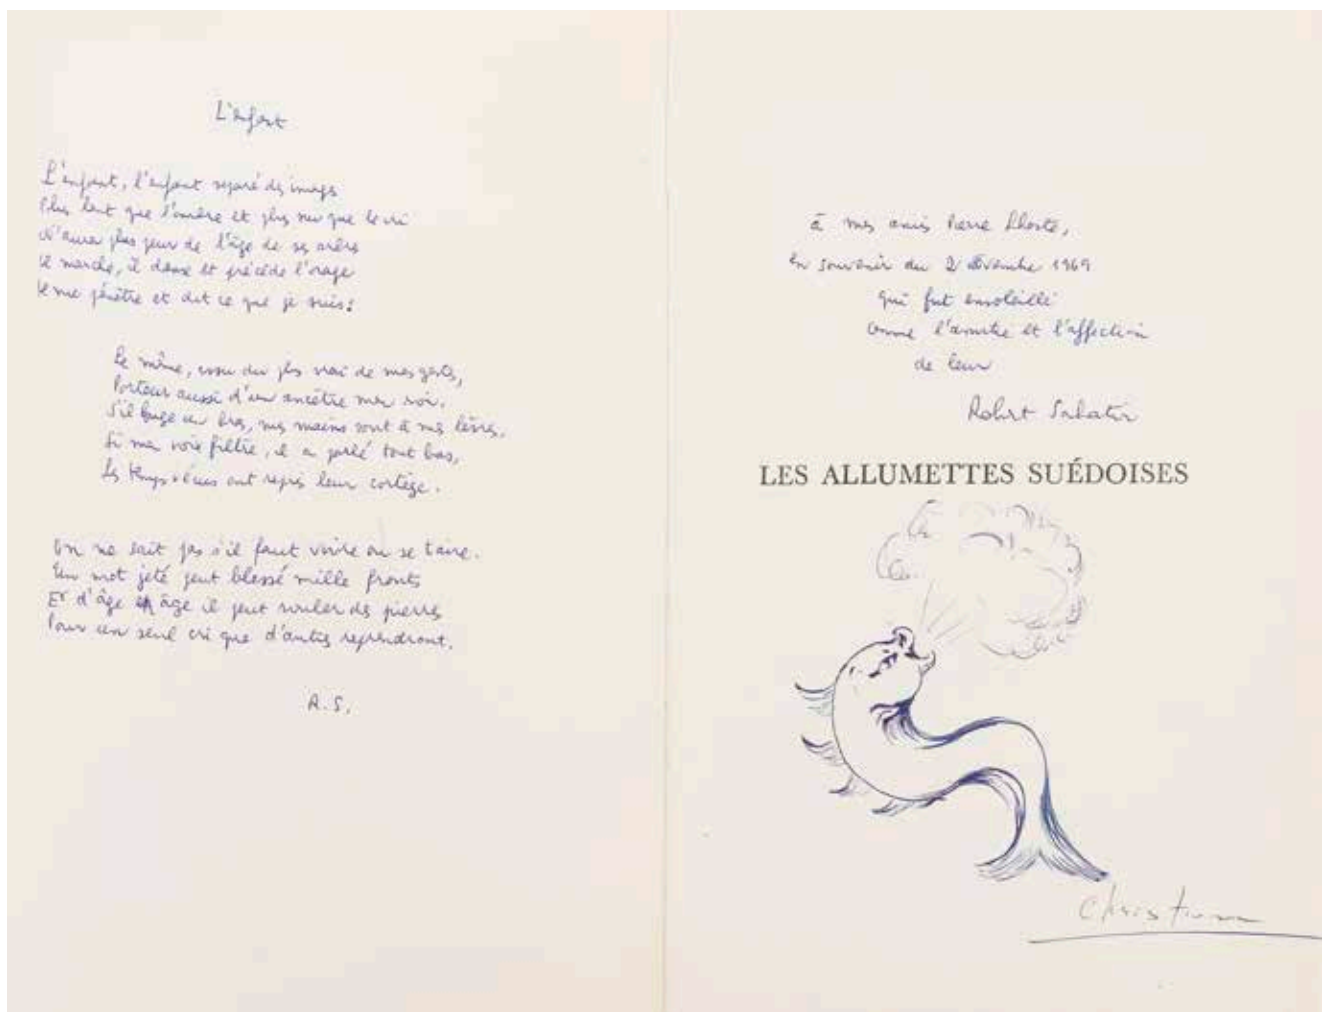 L'enfant
L'enfant, l'enfant séparé des images
Plus lent que l'ombre et plus nu que le cri
N'aura plus peur de l'âge de ses arbres
Il marche, il danse et précède l'orage
Il me pénètre et dit ce que je suis :
Le même, issu du plus vrai de mes gestes,
Porteur aussi d'un ancêtre mon roi.
S'il bouge un bras, mes mains sont à mes lèvres,
Si ma voix filtre, il a parlé tout bas,
Les temps vécus ont repris leur cortège.
On ne sait pas s'il faut vivre ou se taire.
Un mot jeté peut blessé mille fronts
Et d'âge en âge il peut rouler des pierres
Pour un seul cri que d'autres reprendront.
R.S.
à mes amis Pierre Lhoste,
en souvenir du 2 décembre 1969
qui fut ensoleillé
comme l'amitié et l'affection
de leur
Robert Sabatier
LES ALLUMETTES SUÉDOISES
Christiane